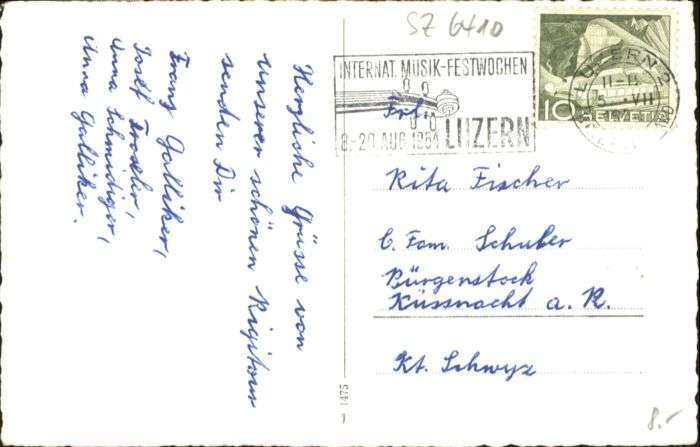 SZ 6410
INTERNAT. MUSIK-FESTWOCHEN
8.-29. AUG. 1954 LUZERN
LUZERN 2
HELVETIA
10
Herzliche Grüsse von
unserer schönen Rigitour
senden Dir
Franz Galliker,
Josef Troxler,
Anna Schmidiger,
Anna Galliker.
Frl.
Rita Fischer
b. Fam. Schuler
Bürgenstock
Küssnacht a. R.
Kt. Schwyz
1475
1
8.-